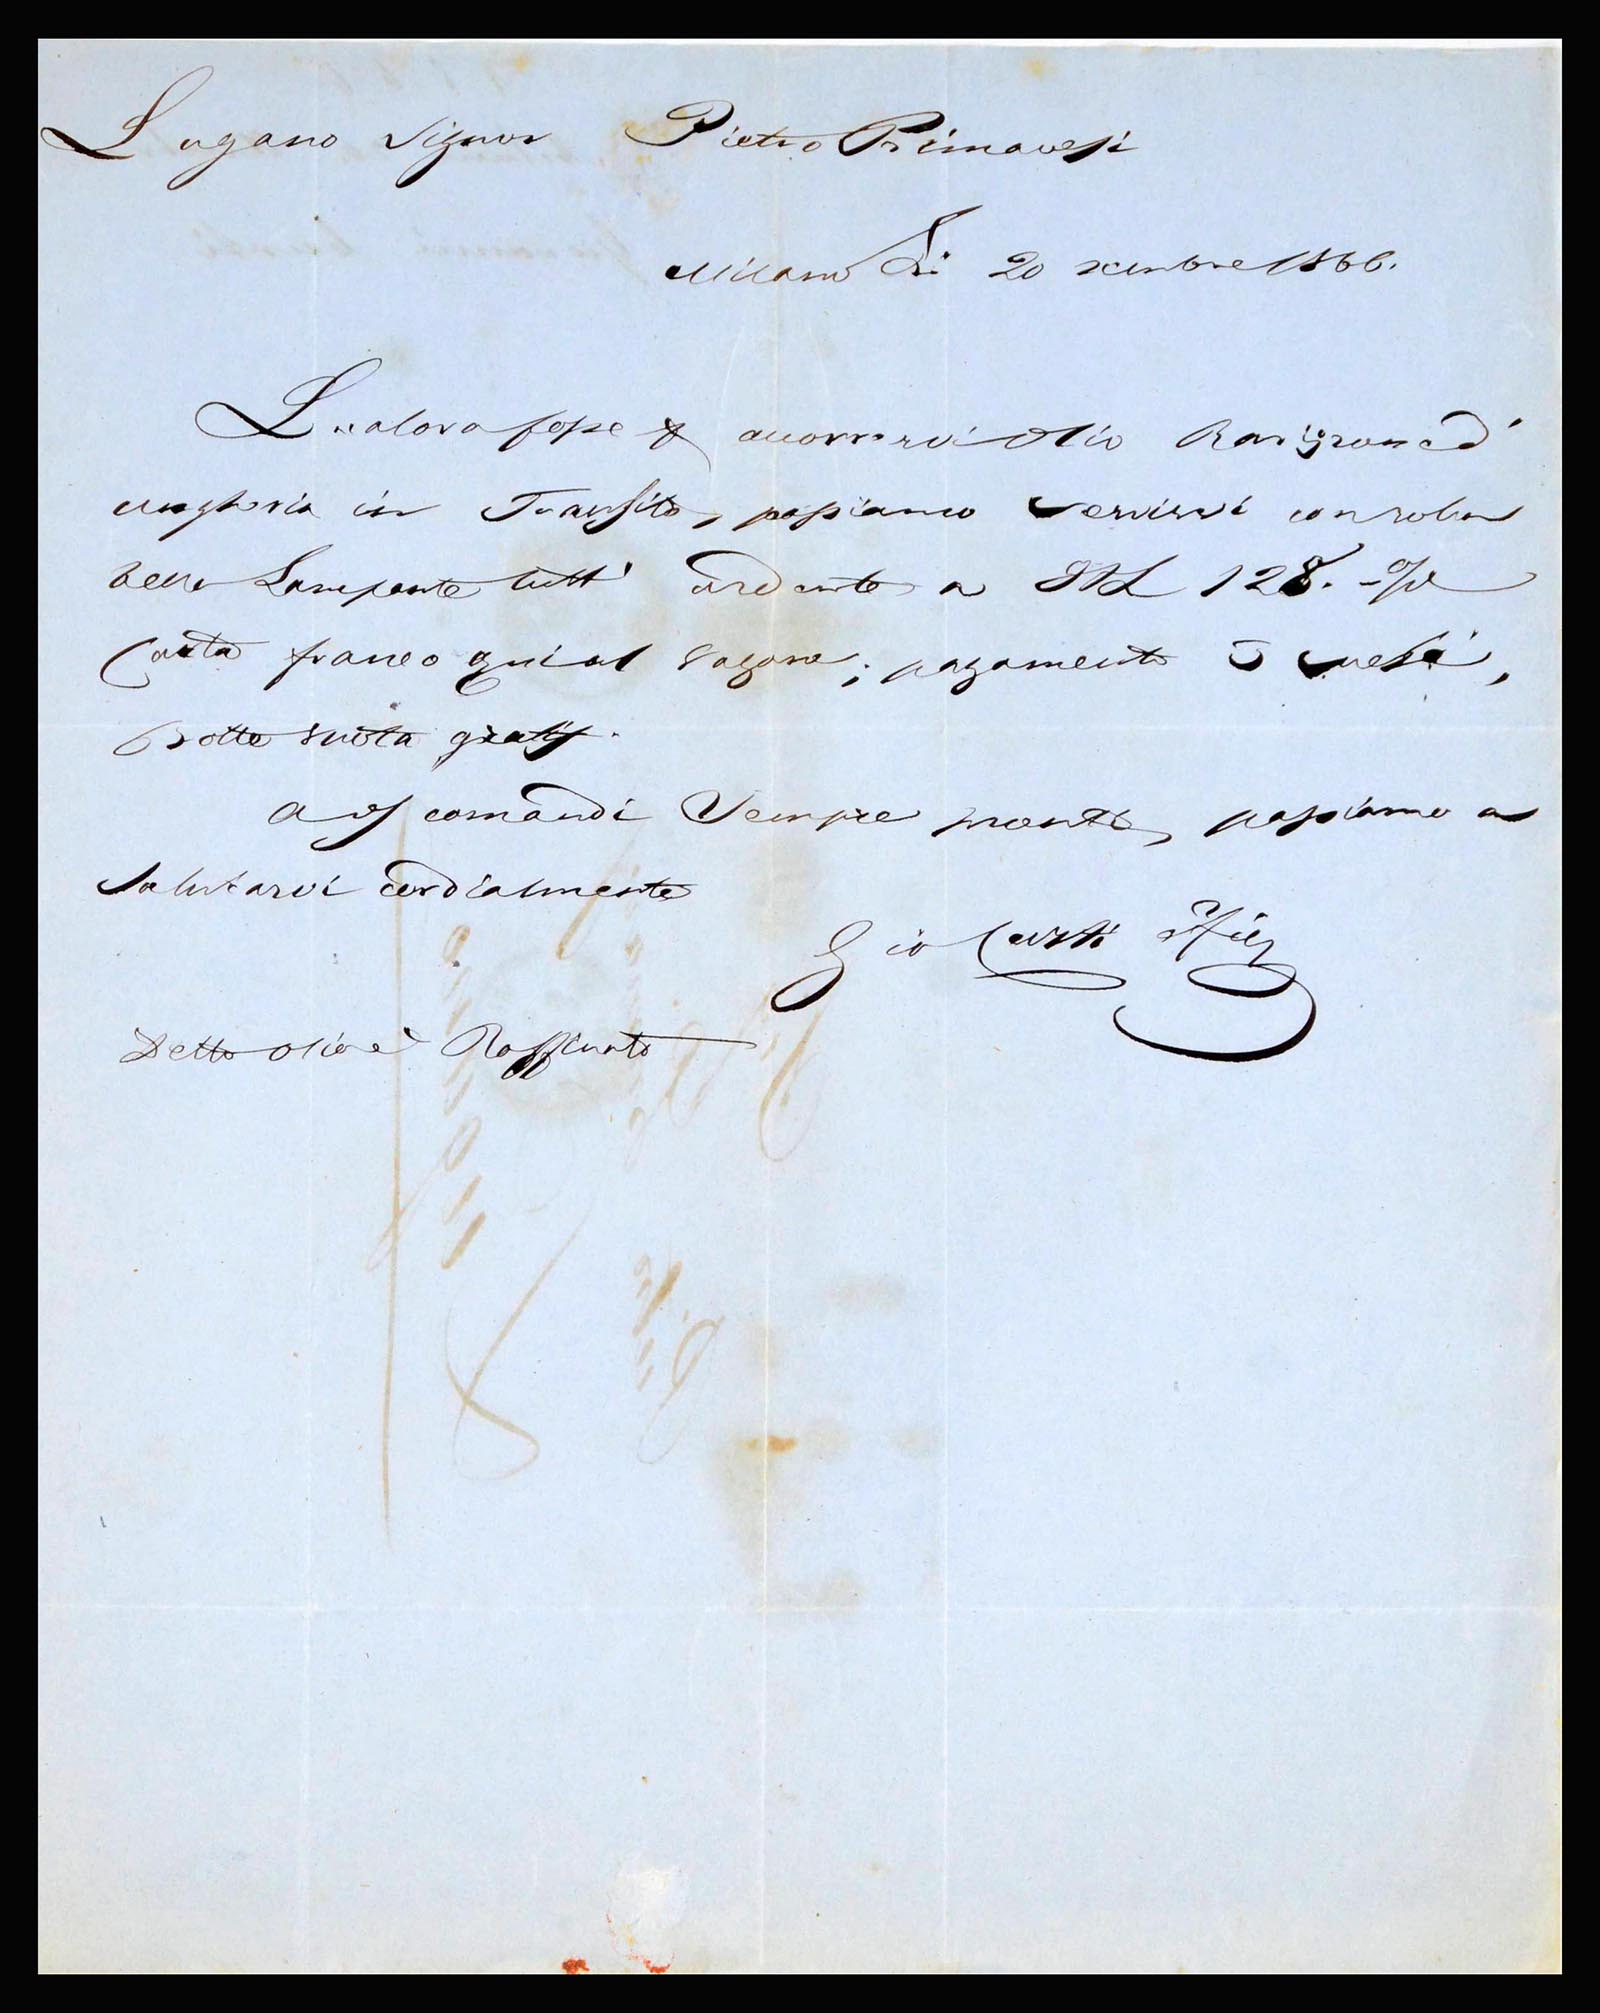 Lugano Signor Pietro Primavesi
Milano Li 20 xembre 1866.
Qualora fosse p accorrervi Olio Ravizzone d'
Ungheria in Transito, possiamo servirvi con roba
bella Lampante tutt' ardente a 128. -%
Carta franco qui al Vagone; pagamento 3 mesi,
Botte vuota gratis.
A vs comandi Sempre pronti, passiamo a
Salutarvi cordialmente
Gio Curti
Detto olio è Raffinato